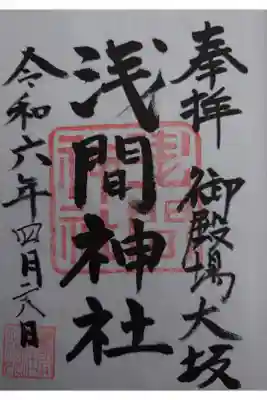 奉拝
御殿場大坂
浅間神社
令和六年四月二八日